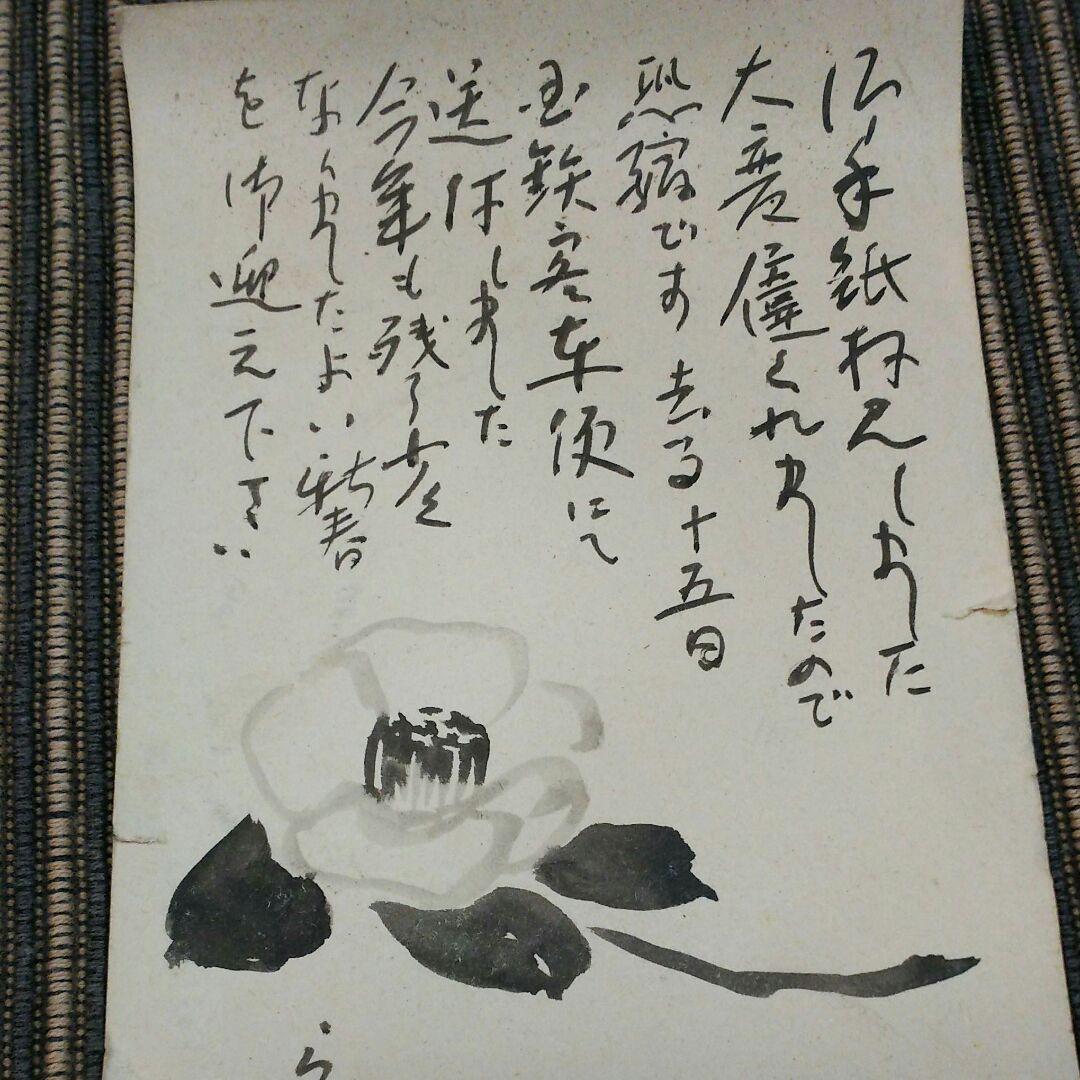 御手紙拝見しました
大変遅くれましたので
恐縮です 去る十五日
国鉄客車便にて
送付しました
今年も残り少く
なりましたよい新春
を御迎え下さい